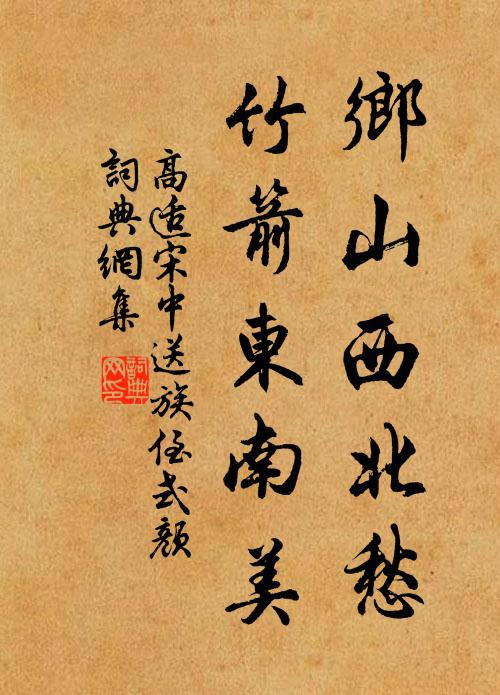 鄉山西北愁
竹箭東南美
高适宋中送族侄式顏
詞典網集
詞典網印